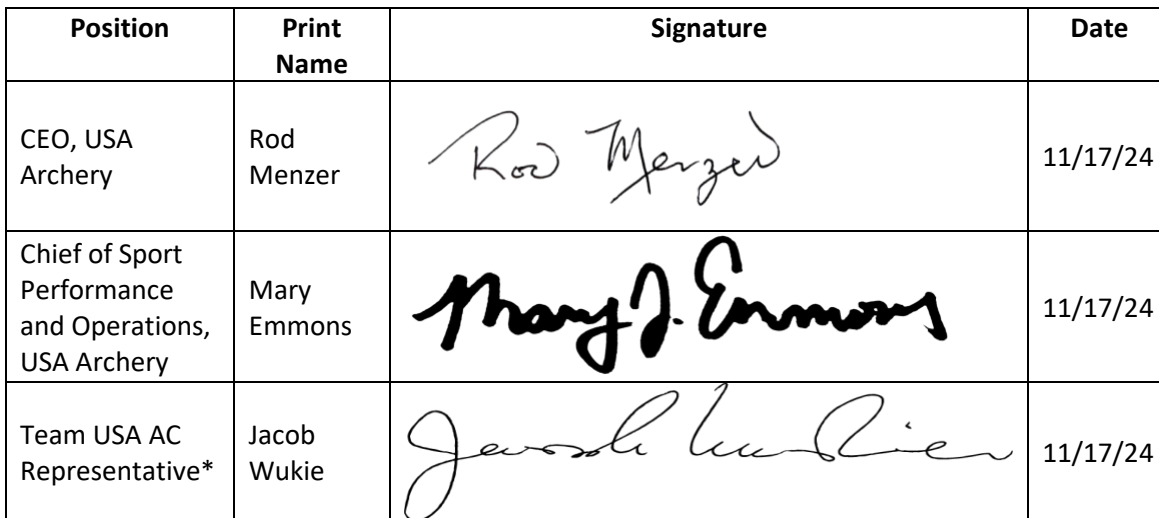 Position Print Name Signature Date
CEO, USA Archery Rod Menzer Rod Menzer 11/17/24
Chief of Sport Performance and Operations, USA Archery Mary Emmons Mary J. Emmons 11/17/24
Team USA AC Representative* Jacob Wukie Jacob Wukie 11/17/24